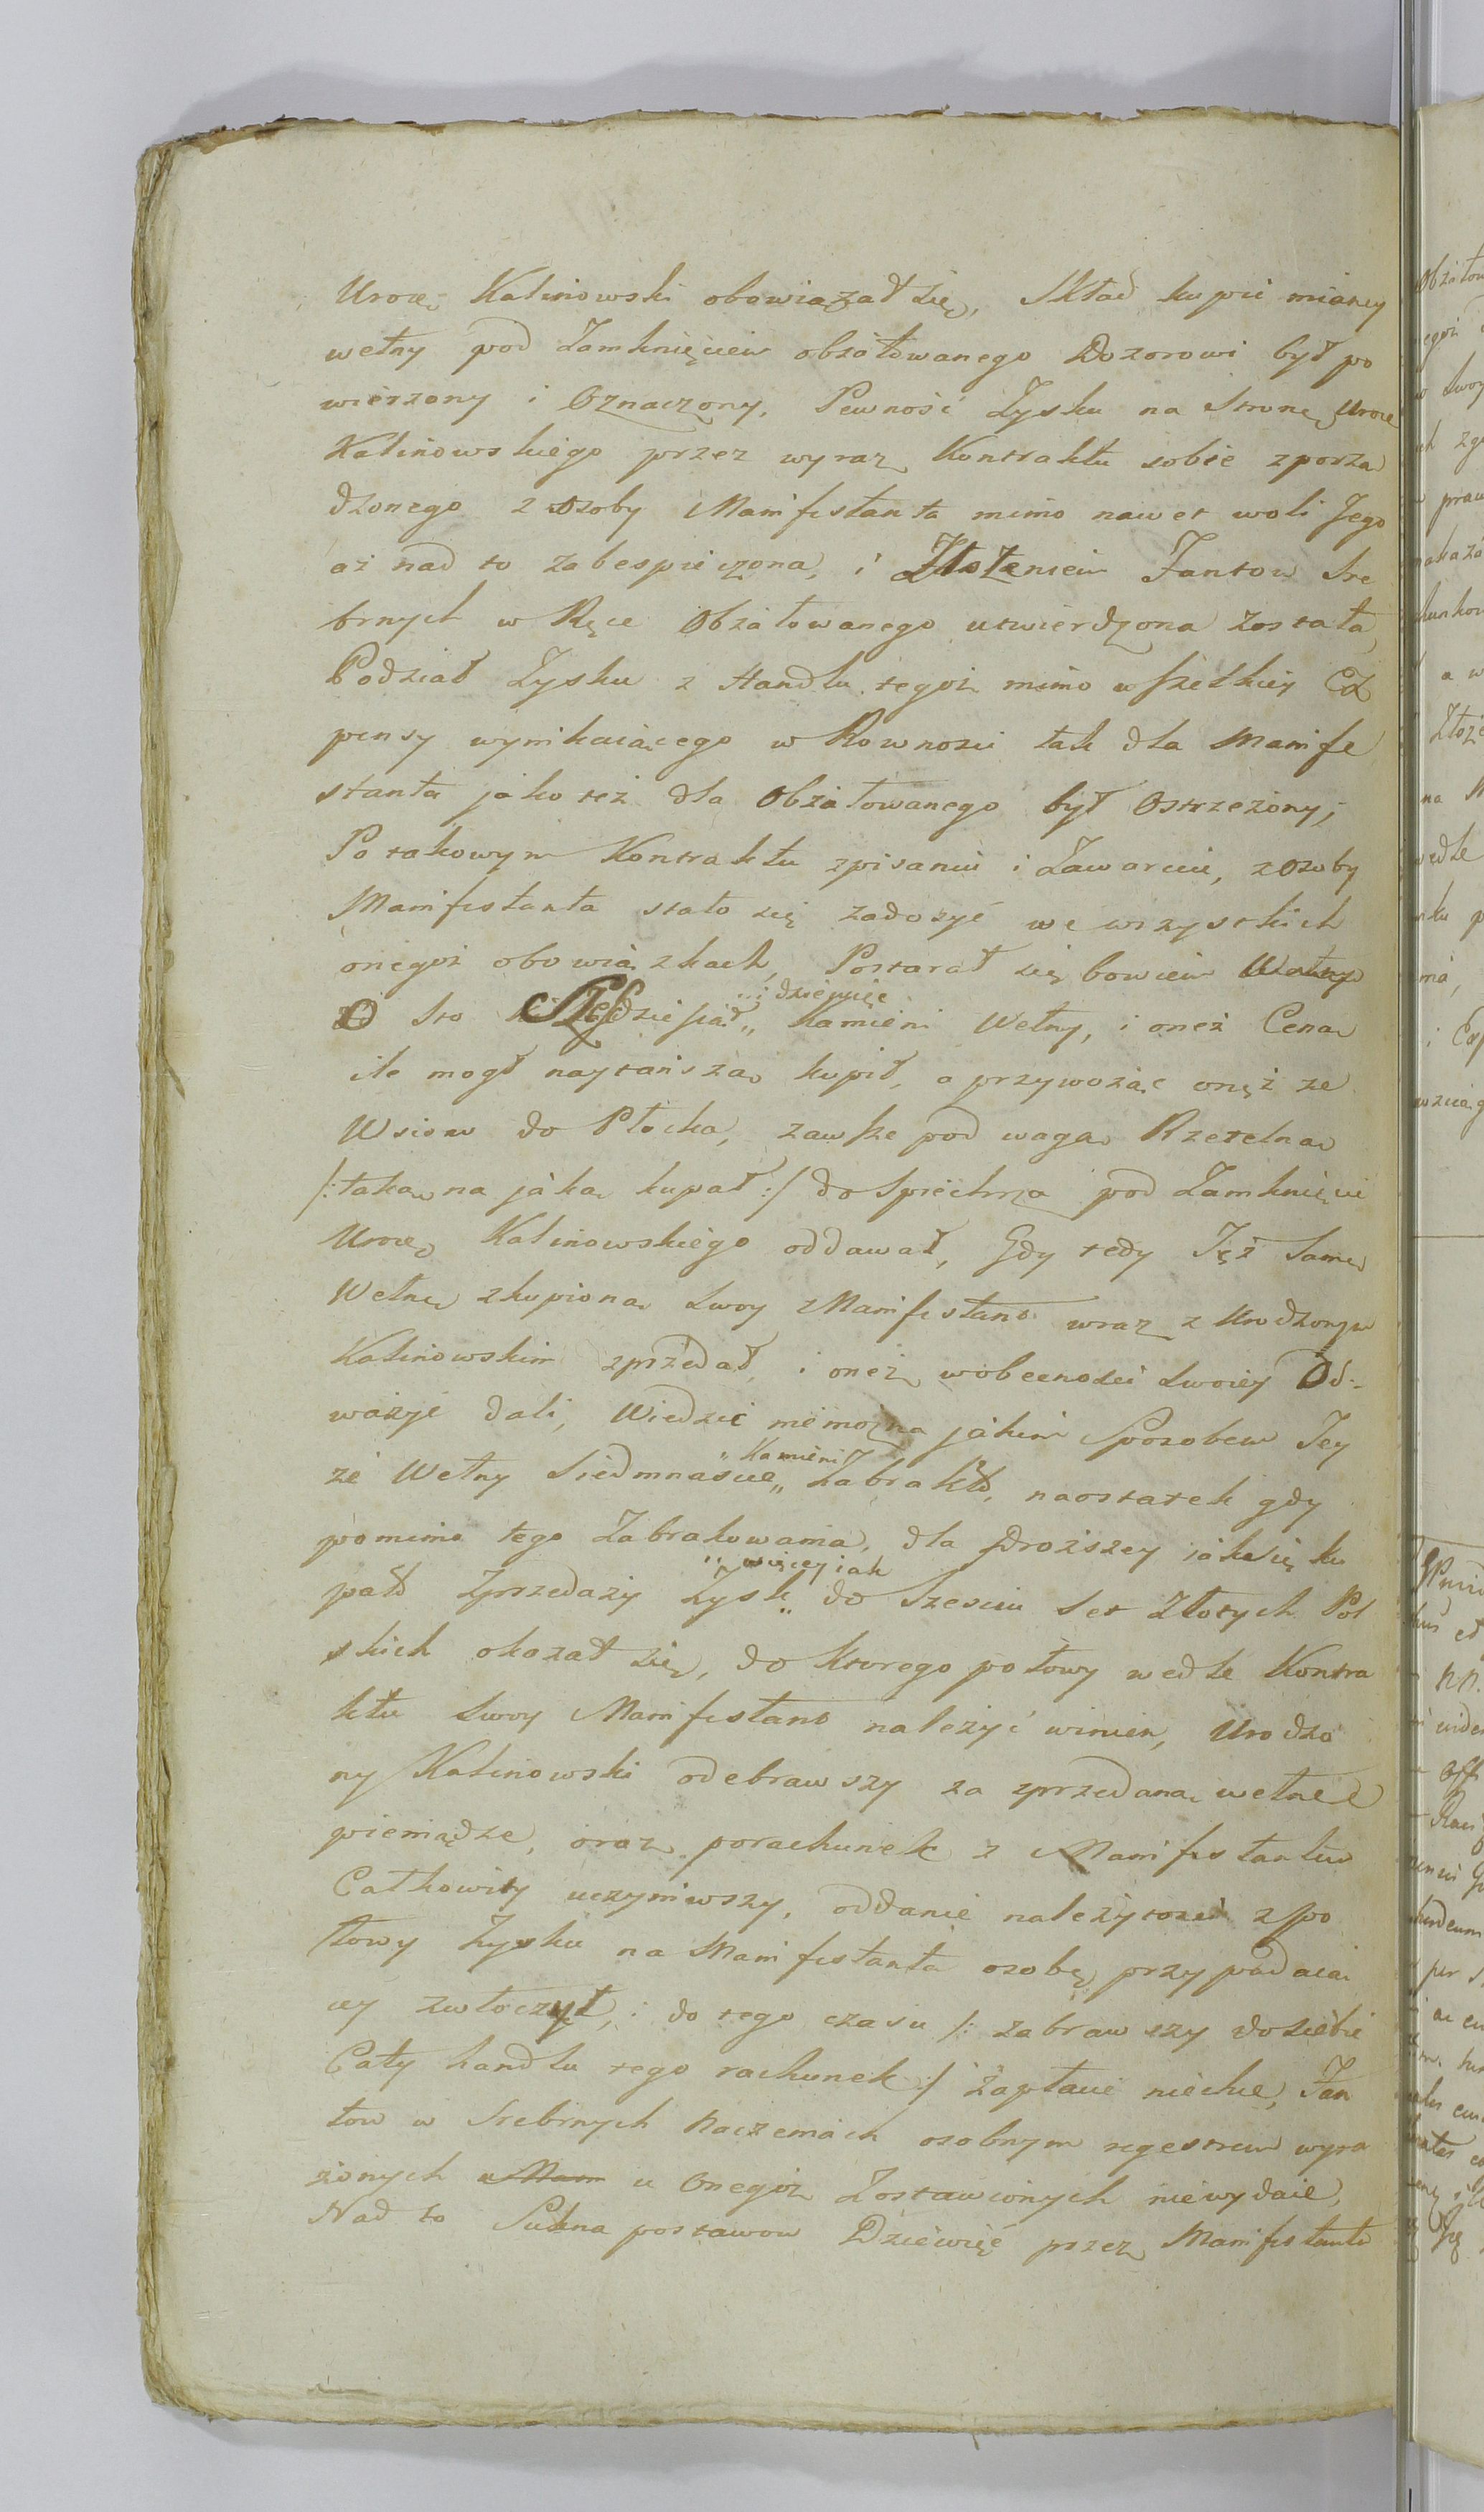 Uroz. Kalinowski obowiązał się, Skład kupić mianey
wełny pod Zamknięciem obżałowanego Dozorowi był po
wierzony i Oznaczony, Pewność Zysku na Stronę Uroz
Kalinowskiego przez wyraz Kontraktu sobie zporzą
dzonego z Osoby Manifestanta mimo nawet woli Jego
aż nad to zabespieczona, i Złożeniem Fantow Sre
brnych w Ręce Obżałowanego utwierdzona została,
Podział Zysku z Handlu tegoż mimo wszelkiey Ex
pensy wynikaiącego w Rownosci tak dla Manife
stanta jako też dla Obżałowanego był Ostrzeżony;
Po takowym Kontraktu zpisaniu i Zawarciu, z Osoby
Manifestanta stało się zadosyć we wszystkich
onegoż obowiązkach, Postarał się bowiem
O Sto dziesiąt „i dziewięć„ Kamieni Wełny, i oneż Cena
ile mogł naytańszą kupił, a przywożąc onęż ze
Wsiow do Płocka, zawsze pod wagą Rzetelną
/: taką na jaką kupał :/ do Spiechrza pod Zamknięcie
Uroz. Kalinowskiego oddawał, Gdy tedy Tęż Samę
Wełnę zkupioną Swoy Manifestant wraz z Urodzonym
Kalinowskim zprzedał, i oneż w obecności Swoiey Od-
ważyć dali, Wiedzić niemożna jakim Sposobem Tey
że Wełny Siedmnaście „Kamieni„ Zabrakło, naostatek gdy
pomimo tego Zabrakowania, dla Droższey jak się ku
pało Zprzedaży Zysk „więcey iak„ do Szesciu Set Złotych Pol
skich okazał się, do ktorego połowy wedle Kontra
ktu Swoy Manifestant należyć winien, Urodzo
ny Kalinowski odebrawszy za zprzedaną wełnę
pieniądze, oraz porachunek z Manifestantem
Całkowity uczyniwszy, oddanie należytosci z po
łowy Zysku na Manifestanta osobę przypadaią
cey zwłoczył, i do tego czasu /: zabrawszy do siebie
Cały handlu tego rachunek :/ Zapłacić niechce, Fan
tow w Srebrnych Naczeniach osobnym regestrem wyra
żonych u Onegoż Zostawionych niewydaie,
Nad to Sukna postawow Dziewięć przez Manifestanta